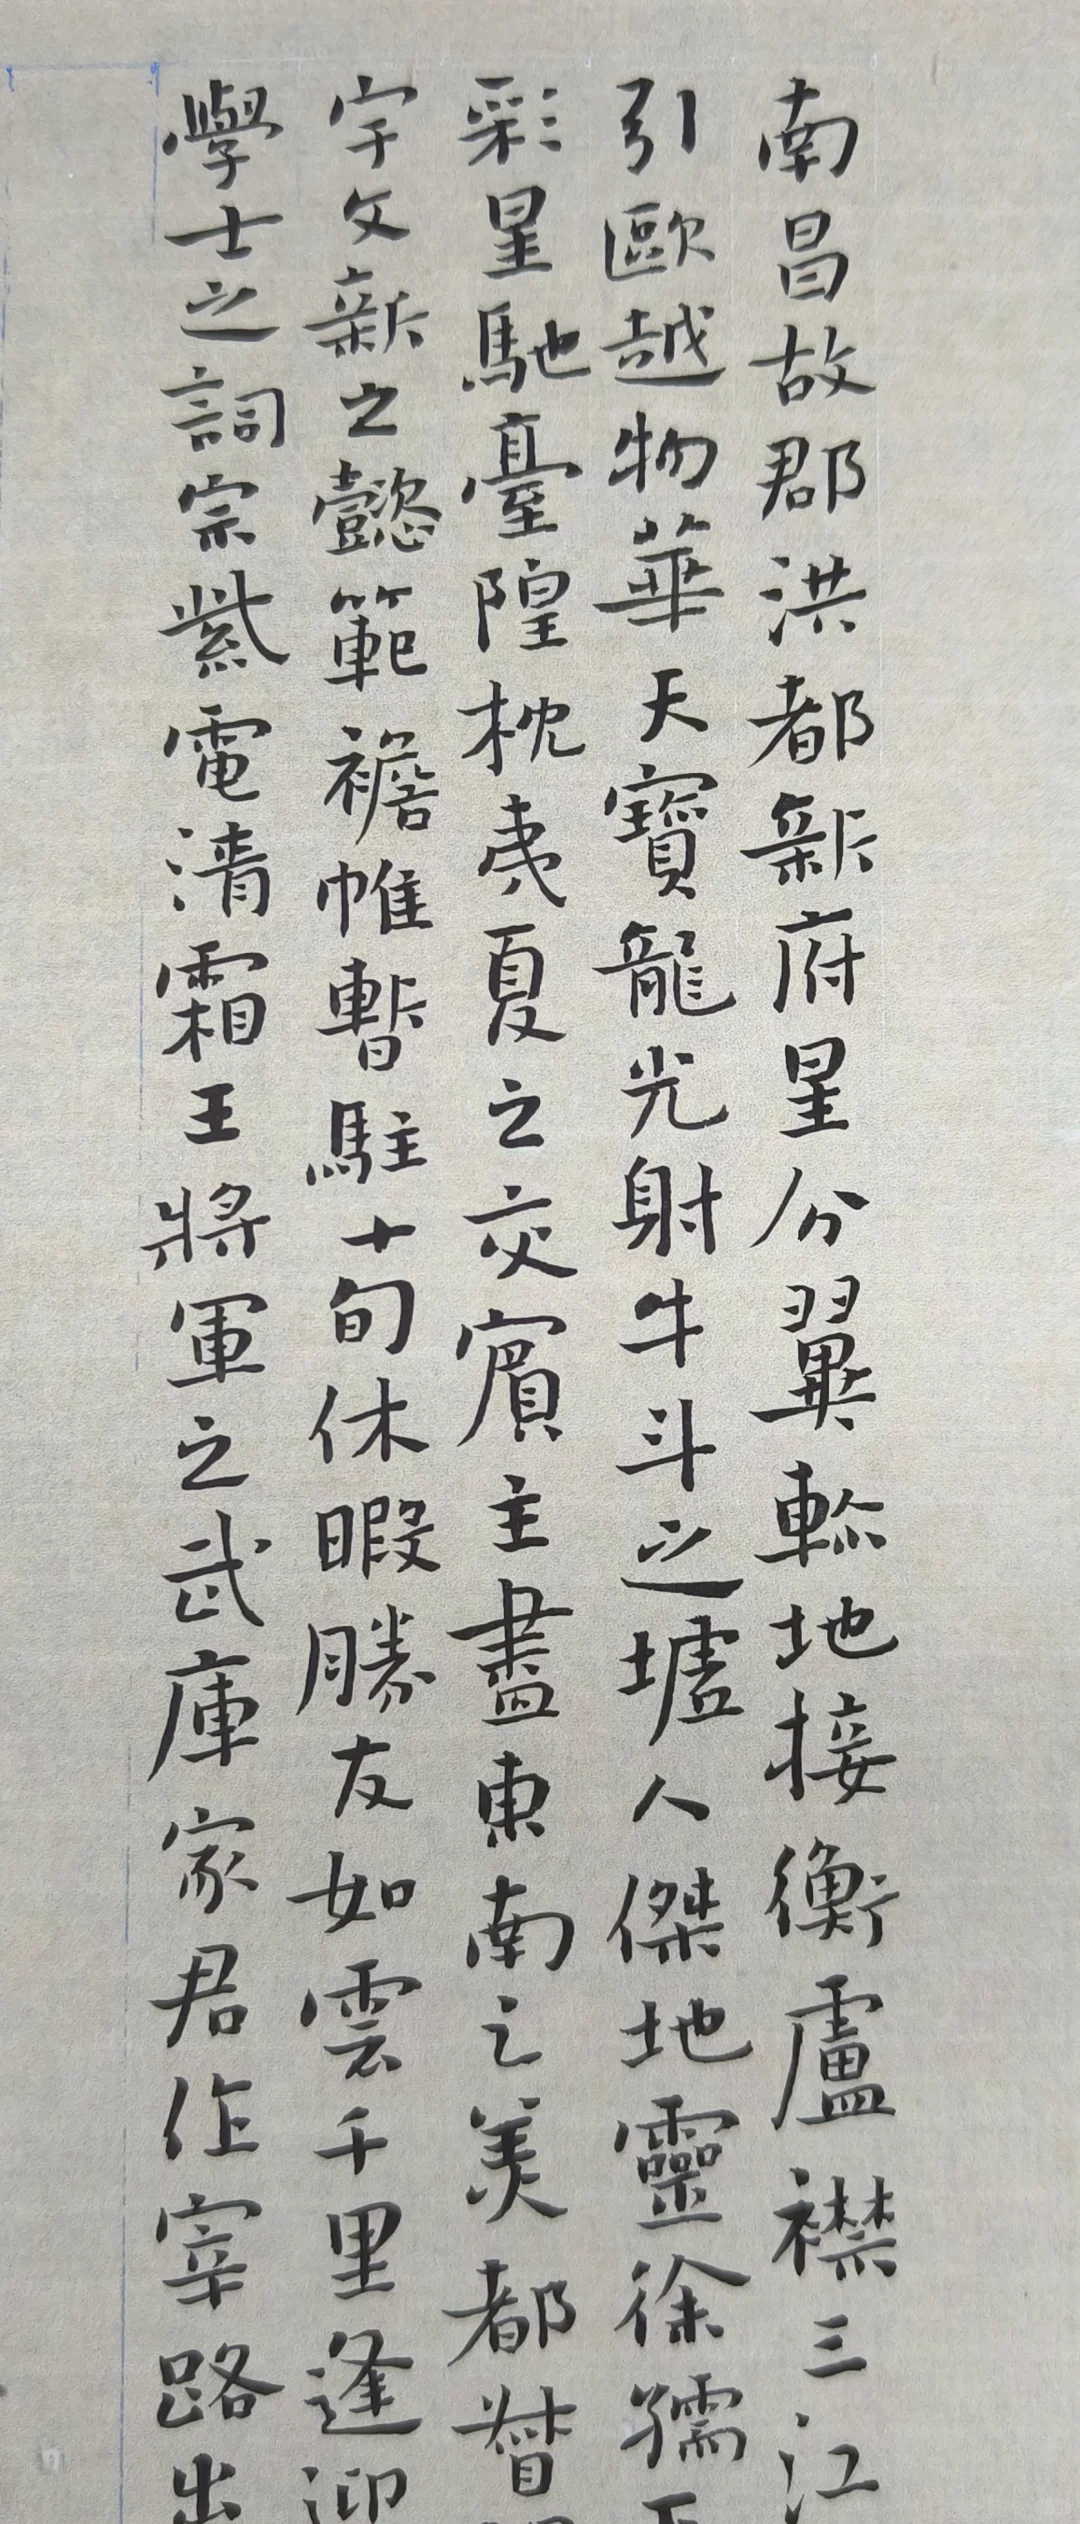 南昌故郡洪都新府星分翼軫地接衡盧襟三江
引甌越物華天寶龍光射牛斗之墟人傑地靈徐孺下
彩星馳臺隍枕夷夏之交賓主盡東南之美都督
宇文新之懿範襜帷暫駐十旬休暇勝友如雲千里逢迎
學士之詞宗紫電清霜王將軍之武庫家君作宰路出